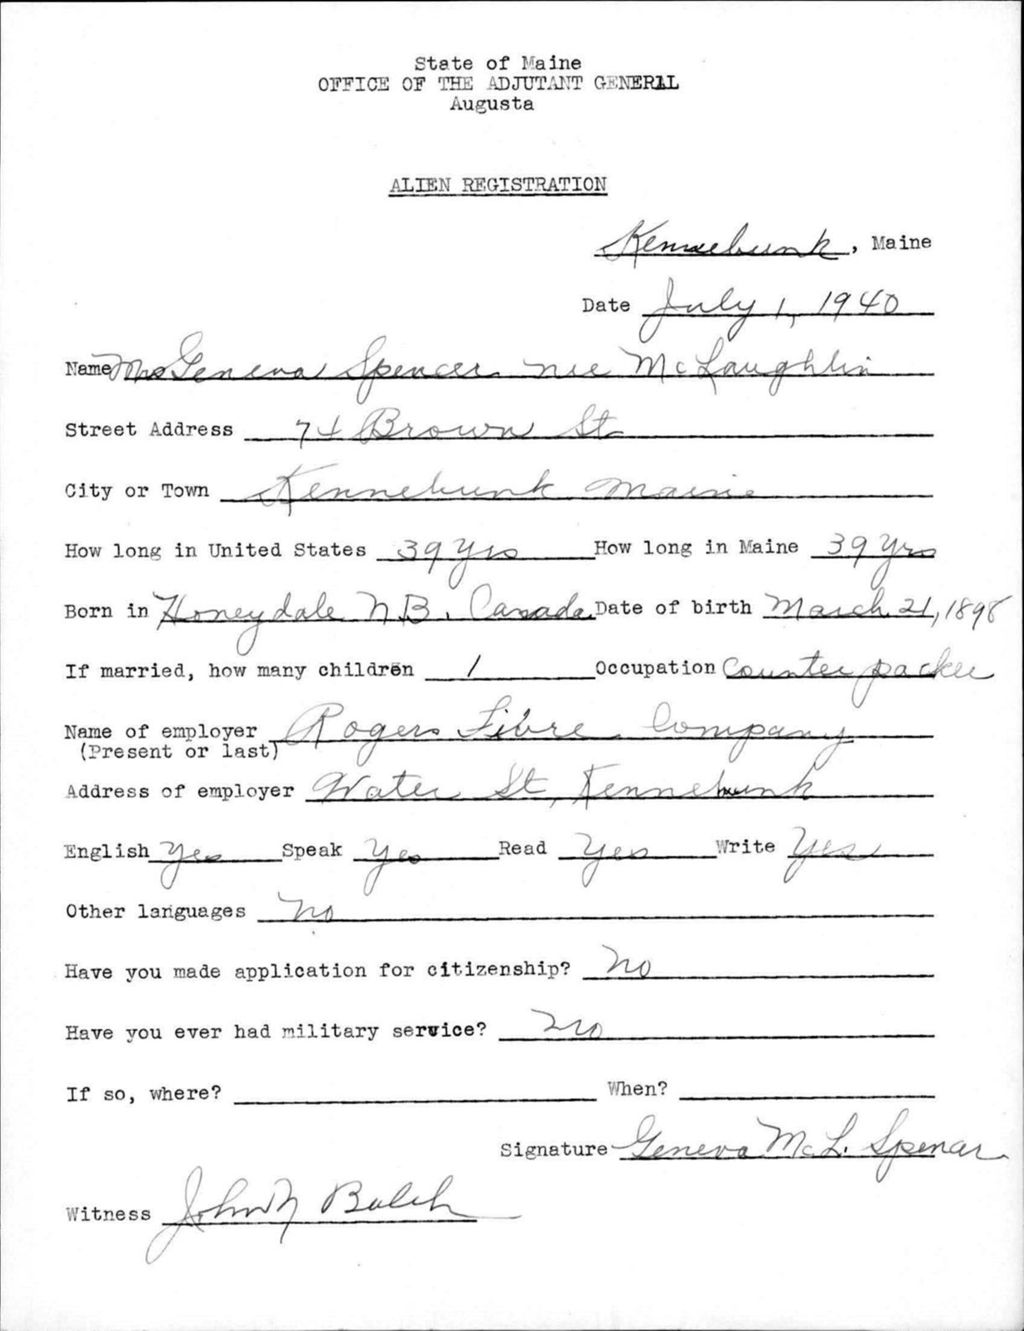 State of Maine
OFFICE OF THE ADJUTANT GENERAL
Augusta
ALIEN REGISTRATION
Kennebunk, Maine
Date July 1, 1940
Name Mrs Geneva Spencer nee McLaughlin
Street Address 74 Brown St
City or Town Kennebunk Maine
How long in United States 39 yrs How long in Maine 39 yrs
Born in Honeydale N.B. Canada Date of birth March 21, 1898
If married, how many children 1 Occupation Counter packer
Name of employer Rogers Fibre Company
(Present or last)
Address of employer Water St, Kennebunk
English Yes Speak Yes Read Yes Write Yes
Other languages No
Have you made application for citizenship? No
Have you ever had military service? No
If so, where? When?
Signature Geneva McL. Spencer
Witness John N Balch